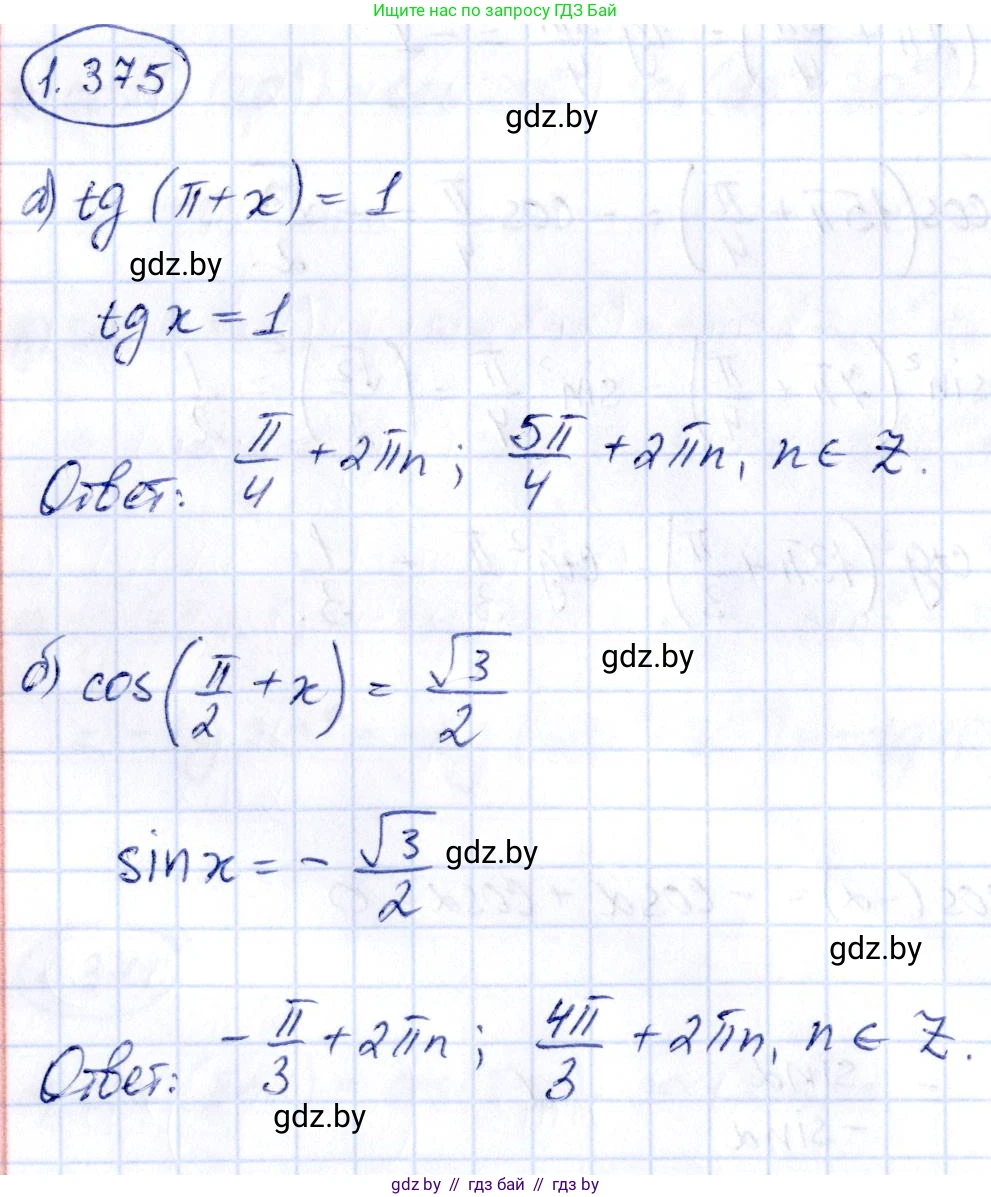 Ищите нас по запросу ГДЗ Бай
1.375
gdz.by
а) tg (π + x) = 1
gdz.by
tg x = 1
Ответ: π/4 + 2πn; 5π/4 + 2πn, n ∈ Z.
б) cos(π/2 + x) = √3/2
gdz.by
sin x = - √3/2
gdz.by
gdz.by
Ответ: - π/3 + 2πn; 4π/3 + 2πn, n ∈ Z.
gdz.by
gdz.by // гдз бай // gdz.by